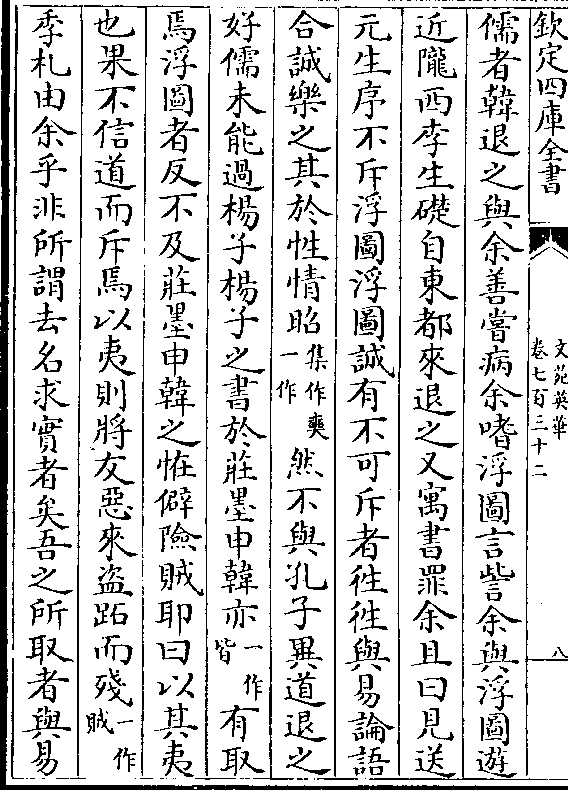 欽定四庫全書
文苑英華
卷七百三十二
八
儒者韓退之與余善嘗病余嗜浮圖言訾余與浮圖遊
近隴西李生礎自東都來退之又寓書罪余且曰見送
元生序不斥浮圖浮圖誠有不可斥者徃徃與易論語
合誠樂之其於性情昭集作奭一作然不與孔子異道退之
好儒未能過楊子楊子之書於莊墨申韓亦一作皆有取
焉浮圖者反不及莊墨申韓之恠僻險賊耶曰以其夷
也果不信道而斥焉以夷則將友惡來盜跖而殘一作賊
季札由余乎非所謂去名求實者矣吾之所取者與易